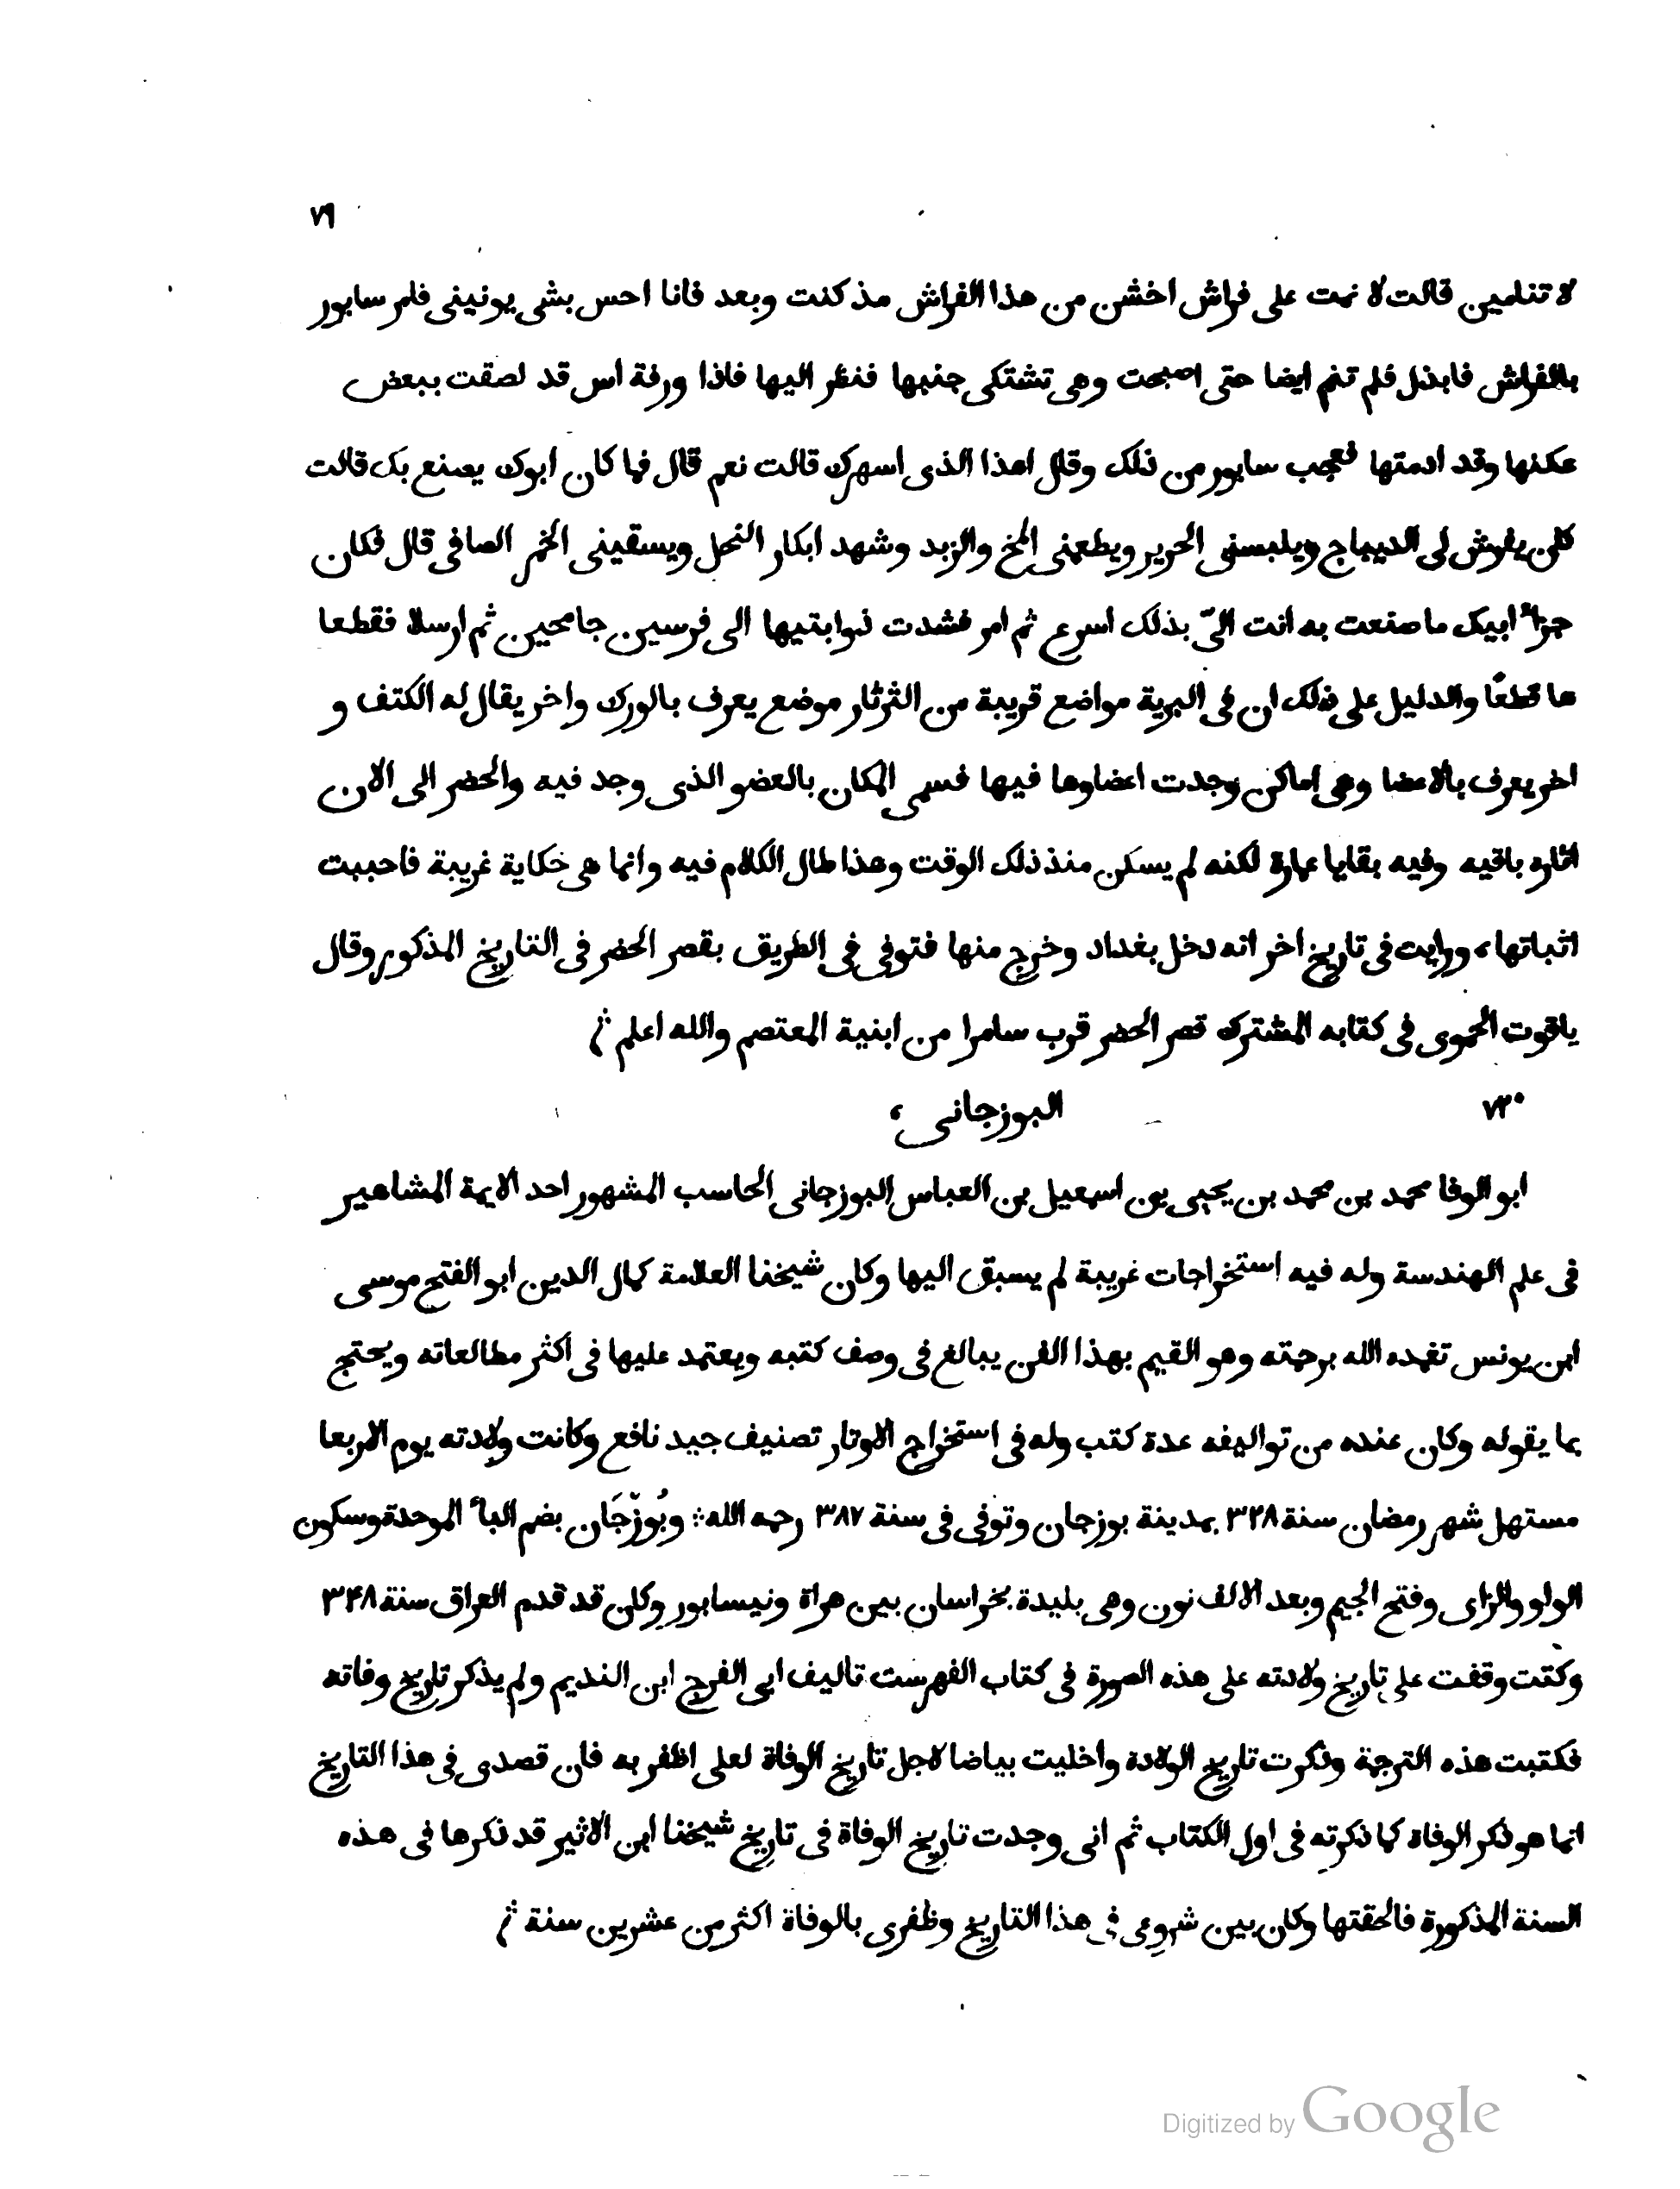 ٧٩
لا تنامين قالت لا نمت على فراش اخشن من هذا الفراش مذ كنت وبعد فانا احس بشى يوذينى فامر سابور
بالفراش فابدل فلم تنم ايضا حتى اصبحت وهى تشتكى جنبها فنظر اليها فاذا ورقة اس قد لصقت ببعض
عكنها وقد ادمتها فعجب سابور من ذلك وقال اهذا الذى اسهرك قالت نعم قال فما كان ابوك يصنع بك قالت
كان يفرش لى الديباج ويلبسنى الحرير ويطعمنى المخ والزبد وشهد ابكار النحل ويسقينى الخمر الصافى قال فكان
جزاء ابيك ما صنعت به انت الىّ بذلك اسرع ثم امر فشدت ذوابتيها الى فرسين جامحين ثم ارسلا فقطعا
ها قطعًا والدليل على ذلك ان فى البرية مواضع قريبة من الثرثار موضع يعرف بالورك واخر يقال له الكتف و
اخر يعرف بالاعضا وهى اماكن وجدت اعضاوها فيها فسمى المكان بالعضو الذى وجد فيه والحضر الى الان
اثاره باقيه وفيه بقايا عمارة لكنه لم يسكن منذ ذلك الوقت وهذا طال الكلام فيه وانما هى حكاية غريبة فاحببت
اثباتها، ورايت فى تاريخ اخر انه دخل بغداد وخرج منها فتوفى فى الطريق بقصر الحضر فى التاريخ المذكور وقال
ياقوت الحموى فى كتابه المشترك قصر الحضر قرب سامرا من ابنية المعتصم والله اعلم ۞
٧٢٠
البوزجانى ،
ابو الوفا محمد بن محمد بن يحيى بن اسمعيل بن العباس البوزجانى الحاسب المشهور احد الايمة المشاهير
فى علم الهندسة وله فيه استخراجات غريبة لم يسبق اليها وكان شيخنا العلامة كمال الدين ابو الفتح موسى
ابن يونس تغمده الله برحمته وهو القيم بهذا الفن يبالغ فى وصف كتبه ويعتمد عليها فى اكثر مطالعاته ويحتج
بما يقوله وكان عنده من تواليفه عدة كتب وله فى استخراج الاوتار تصنيف جيد نافع وكانت ولادته يوم الاربعا
مستهل شهر رمضان سنة ٣٢٨ بمدينة بوزجان وتوفى فى سنة ٣٨٧ رحمه الله: وبُوزْجَان بضم الباء الموحدة وسكون
الواو والزاى وفتح الجيم وبعد الالف نون وهى بليدة بخراسان بين هراة ونيسابور وكان قد قدم العراق سنة ٣٤٨
وكنت وقفت على تاريخ ولادته على هذه الصورة فى كتاب الفهرست تاليف ابى الفرج ابن النديم ولم يذكر تاريخ وفاته
فكتبت هذه الترجمة وذكرت تاريخ الولادة واخليت بياضا لاجل تاريخ الوفاة لعلى اظفر به فان قصدى فى هذا التاريخ
انما هو ذكر الوفاة كما ذكرته فى اول الكتاب ثم انى وجدت تاريخ الوفاة فى تاريخ شيخنا ابن الاثير قد ذكرها فى هذه
السنة المذكورة فالحقتها وكان بين شروعى فى هذا التاريخ وظفرى بالوفاة اكثر من عشرين سنة ۞
Digitized by Google